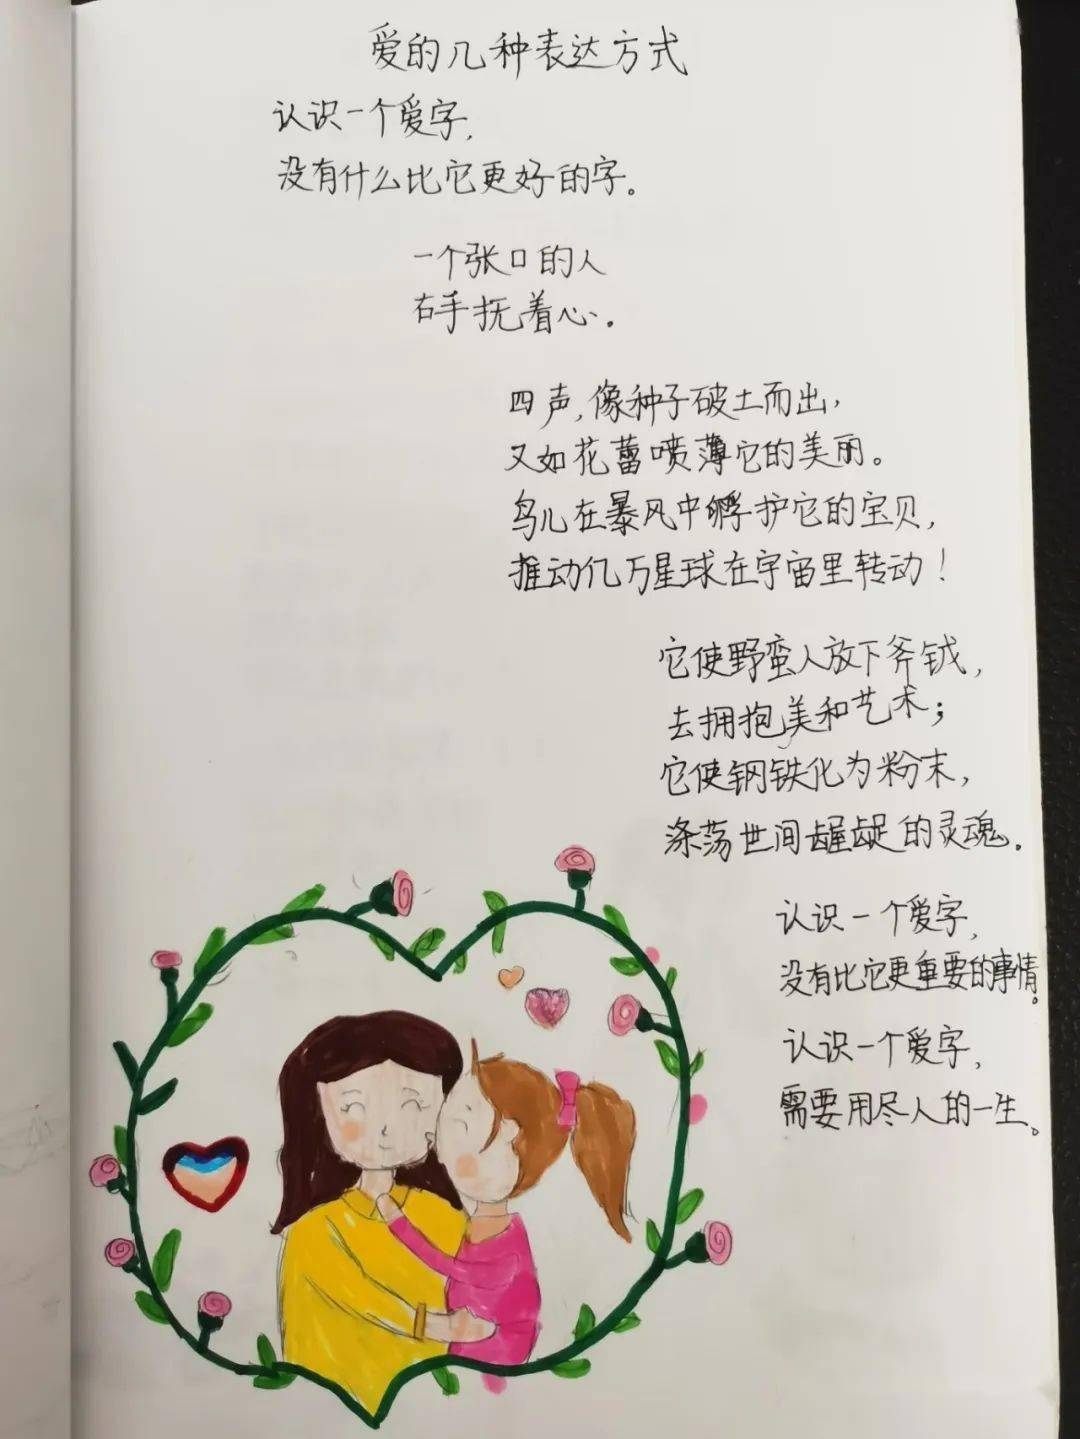 爱的几种表达方式
认识一个爱字，
没有什么比它更好的字。
一个张口的人
右手抚着心。
四声，像种子破土而出，
又如花蕾喷薄它的美丽。
鸟儿在暴风中孵护它的宝贝，
推动亿万星球在宇宙里转动！
它使野蛮人放下斧钺，
去拥抱美和艺术；
它使钢铁化为粉末，
涤荡世间龌龊的灵魂。
认识一个爱字，
没有比它更重要的事情。
认识一个爱字，
需要用尽人的一生。